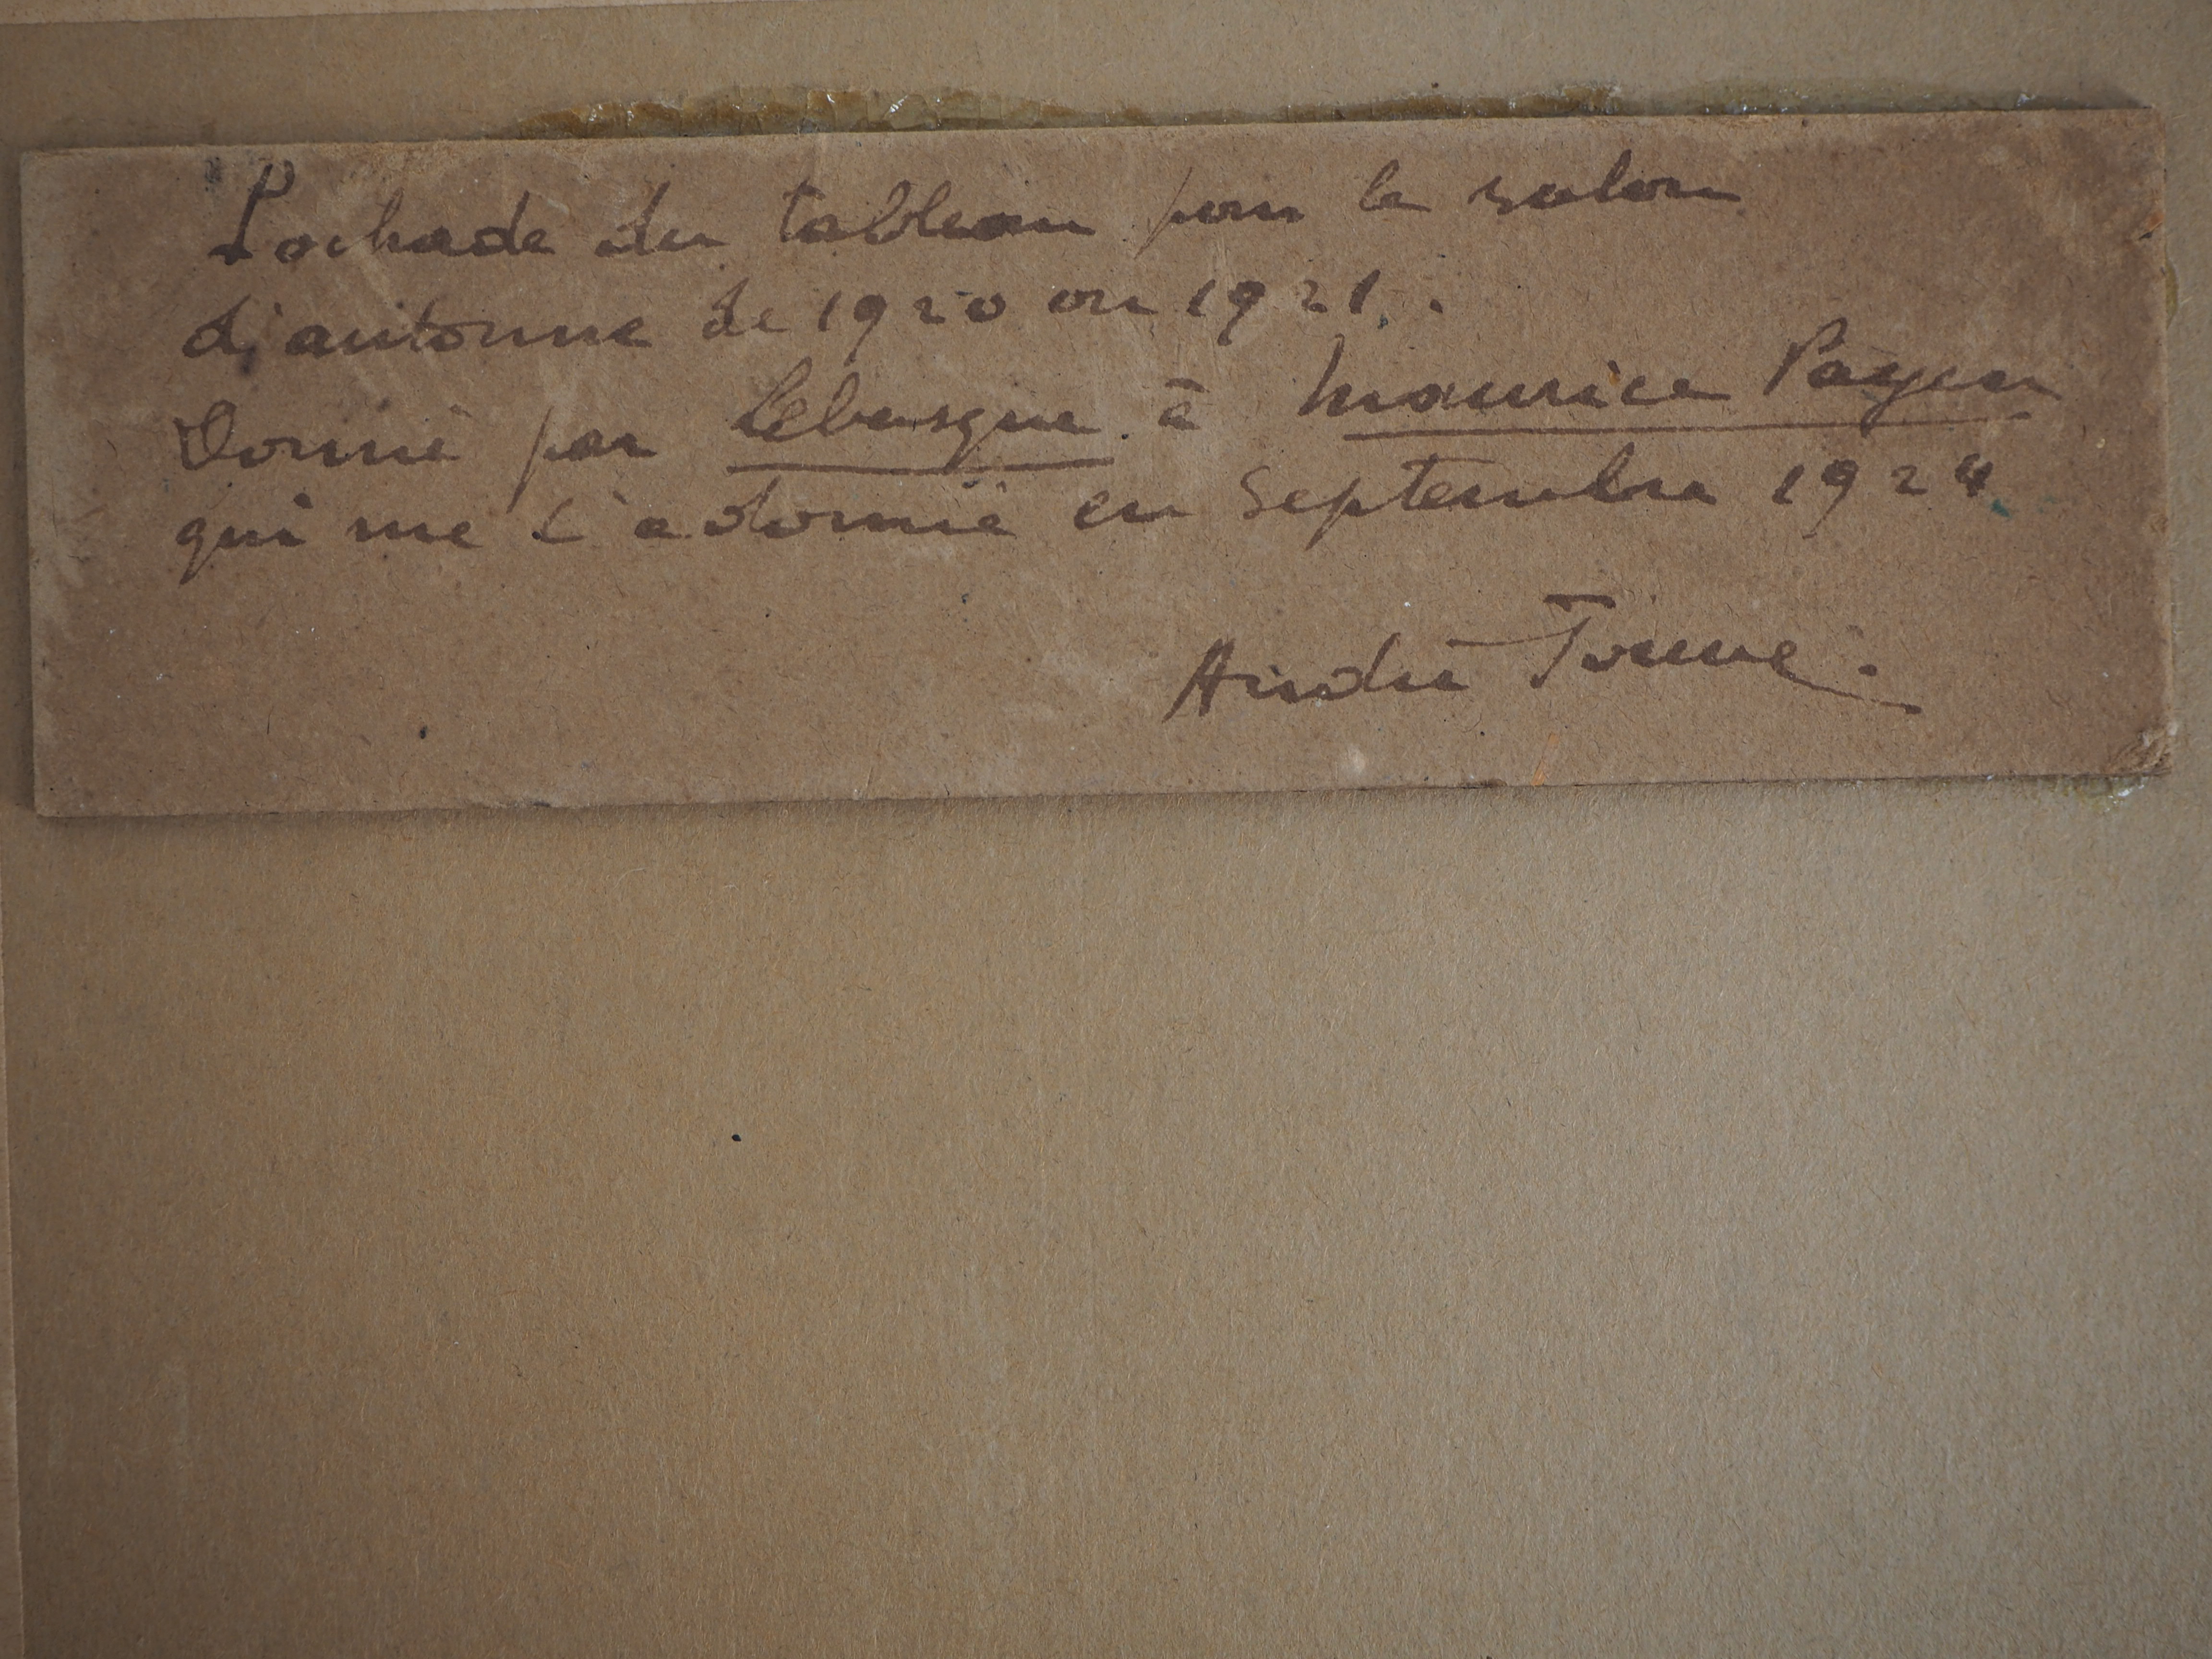 Pochade du tableau pour le salon
d'automne de 1920 ou 1921.
Donné par Lebasque à Maurice Payen
qui me l'a donné en Septembre 1924
André